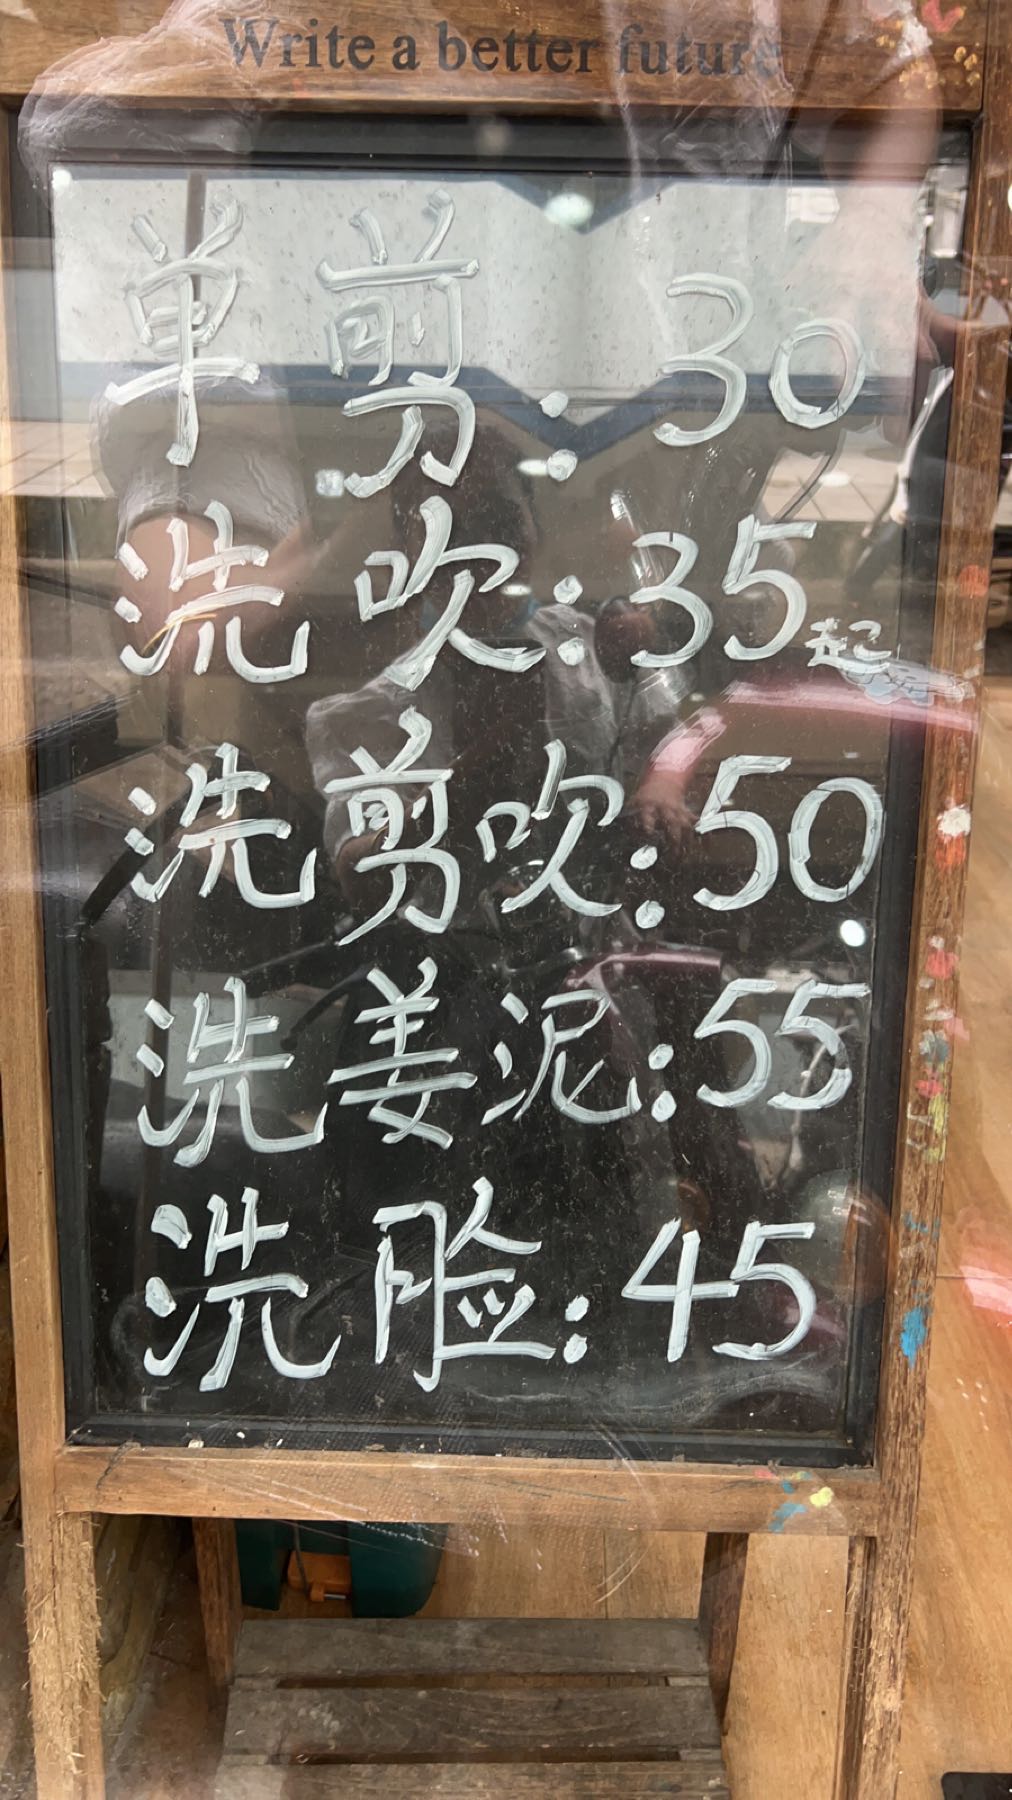 Write a better future
单剪：30
洗吹：35起
洗剪吹：50
洗姜泥：55
洗脸：45